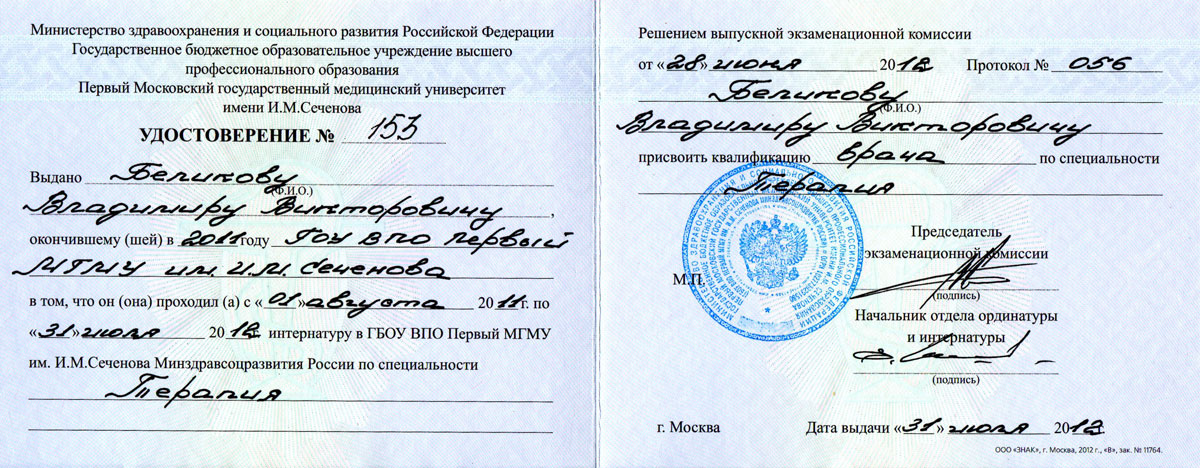 Министерство здравоохранения и социального развития Российской Федерации
Государственное бюджетное образовательное учреждение высшего
профессионального образования
Первый Московский государственный медицинский университет
имени И.М.Сеченова
УДОСТОВЕРЕНИЕ № 153
Выдано Беликову
(Ф.И.О.)
Владимиру Викторовичу,
окончившему (шей) в 2011 году ГОУ ВПО Первый
МГМУ им. И.М. Сеченова
в том, что он (она) проходил (а) с «01» августа 2011г. по
«31» июля 2012г. интернатуру в ГБОУ ВПО Первый МГМУ
им. И.М.Сеченова Минздравсоцразвития России по специальности
Терапия
Решением выпускной экзаменационной комиссии
от «28» июня 2012 Протокол № 056
Беликову
(Ф.И.О.)
Владимиру Викторовичу
присвоить квалификацию врача по специальности
Терапия
Председатель
экзаменационной комиссии
М.П.
(подпись)
Начальник отдела ординатуры
и интернатуры
(подпись)
г. Москва Дата выдачи «31» июля 2012
ООО «ЗНАК», г. Москва, 2012 г., «В», зак. № 11764.